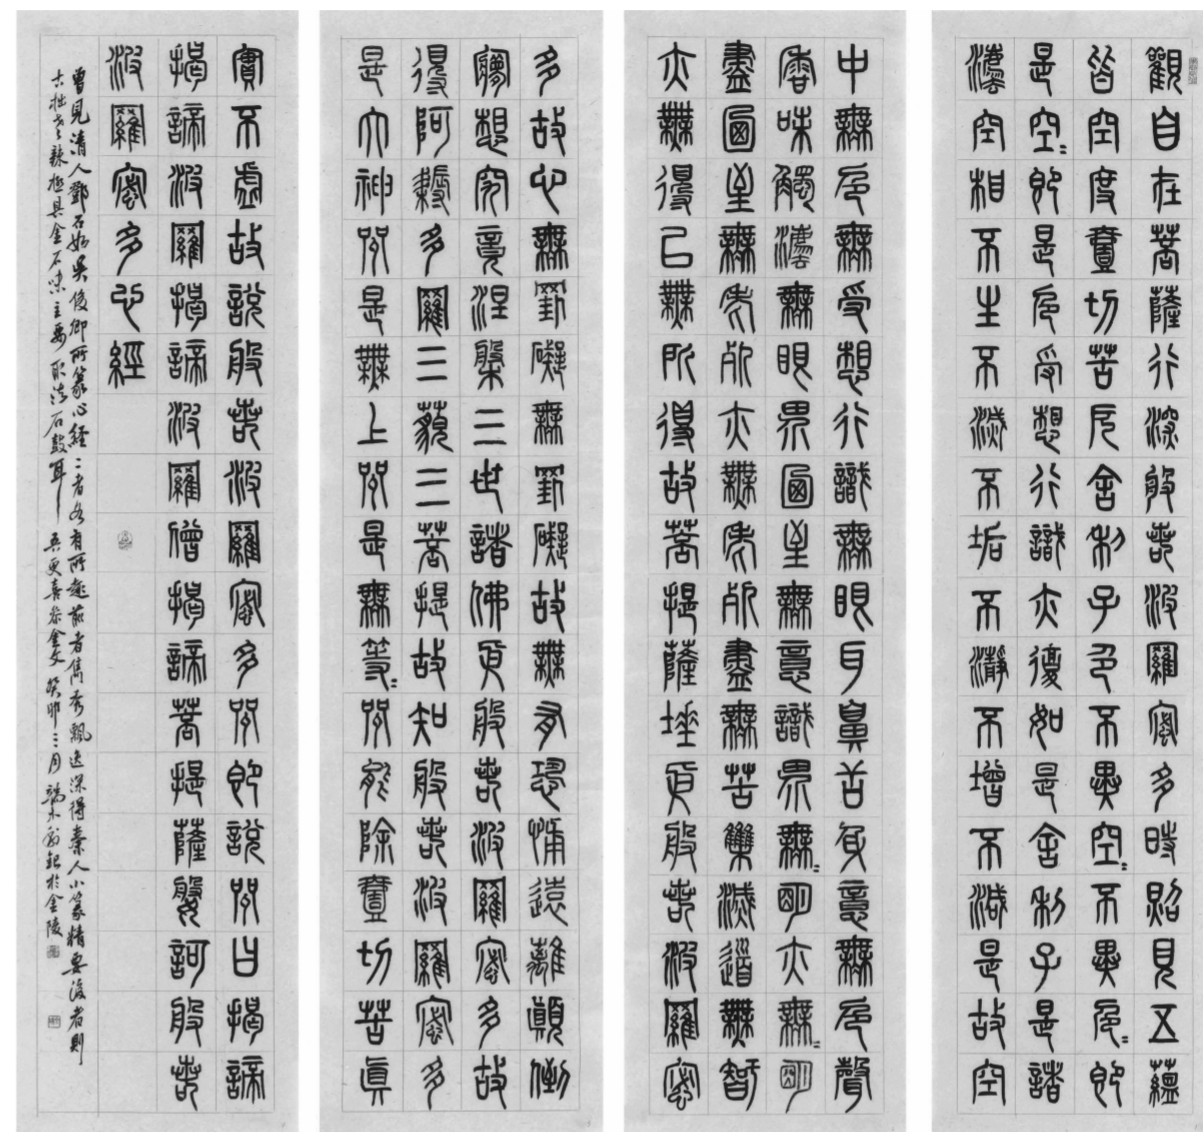 觀自在菩薩行深般若波羅密多時照見五蘊
皆空度壹切苦厄舍利子色不異空〃不異色〃即
是空〃即是色受想行識亦復如是舍利子是諸
法空相不生不滅不垢不瀞不增不減是故空
中無色無受想行識無眼耳鼻舌身意無色聲
香味觸法無眼界乃至無意識界無〃明亦無〃明
盡乃至無老死亦無老死盡無苦集滅道無智
亦無得以無所得故菩提薩埵依般若波羅密
多故心無罣礙無罣礙故無有恐怖遠離顛倒
夢想究竟涅槃三世諸佛依般若波羅密多故
得阿耨多羅三藐三菩提故知般若波羅密多
是大神咒是無上咒是無等〃咒能除壹切苦真
實不虛故說般若波羅密多咒即說咒曰揭諦
揭諦波羅揭諦波羅僧揭諦菩提薩婆訶般若
波羅密多心經
曾見清人鄧石如吳俊卿所篆心經二者各有所趣前者雋秀飄逸深得秦人小篆精要後者則
古拙老辣極具金石味主要取法石鼓耳吾更喜參金文癸卯三月端木記於金陵